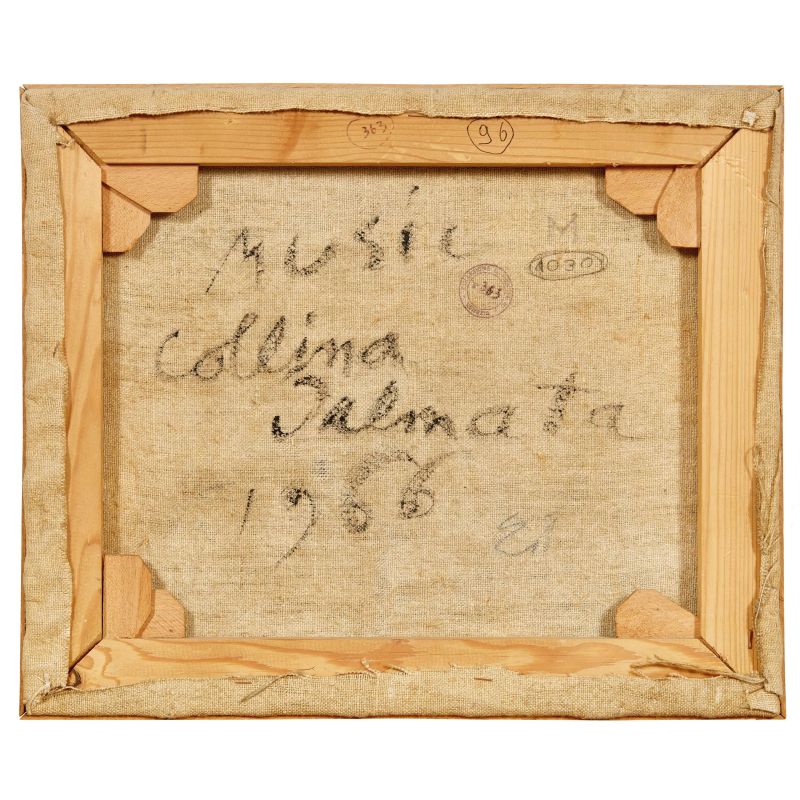 363 96
Music
M
1030
363
Collina
Dalmata
1966